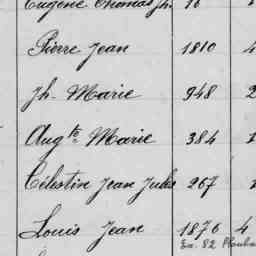 Eugène Thomas Jh.
Pierre Jean 1810 4
Jh. Marie 948 2
Augte. Marie 384 1
Célestin Jean Jules 267 1
Louis Jean 1876 4
En. 82